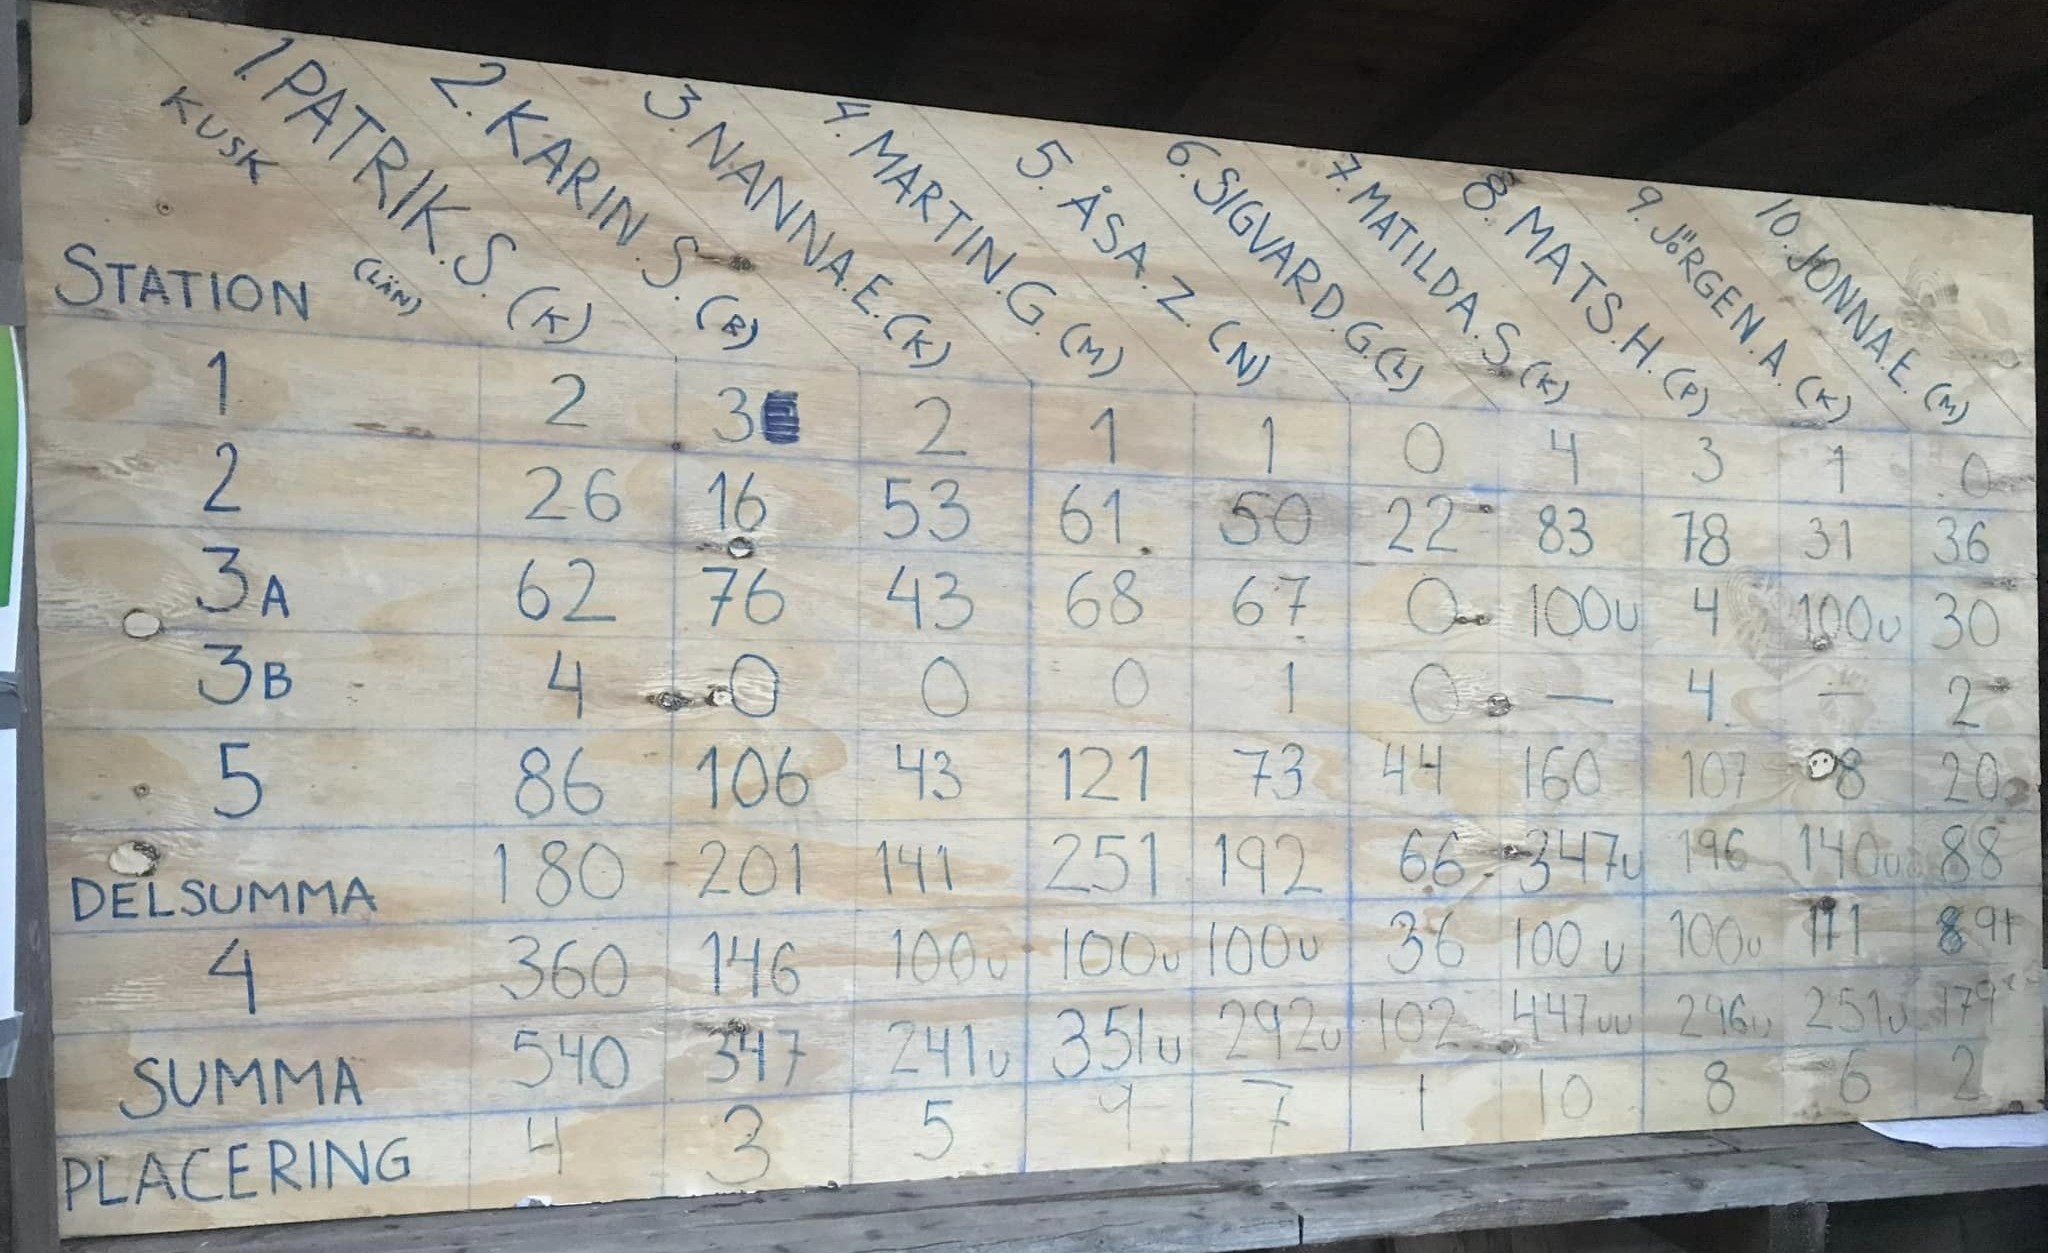 KUSK 1. PATRIK.S. (K) 2. KARIN.S. (R) 3. NANNA.E. (K) 4. MARTIN.G. (M) 5. ÅSA.Z. (N) 6. SIGVARD.G. (L) 7. MATILDA.S (K) 8. MATS.H. (P) 9. JÖRGEN.A. (K) 10. JONNA.E. (M)
STATION (LÄN)
1 2 3 2 1 1 0 4 3 1 0
2 26 16 53 61 50 22 83 78 31 36
3A 62 76 43 68 67 0 100u 4 100u 30
3B 4 0 0 0 1 0 — 4 — 2
5 86 106 43 121 73 44 160 107 8 20
DELSUMMA 180 201 141 251 192 66 347u 196 140u 88
4 360 146 100u 100u 100u 36 100u 100u 111 91
SUMMA 540 347 241u 351u 292u 102 447uu 296u 251u 179
PLACERING 4 3 5 9 7 1 10 8 6 2